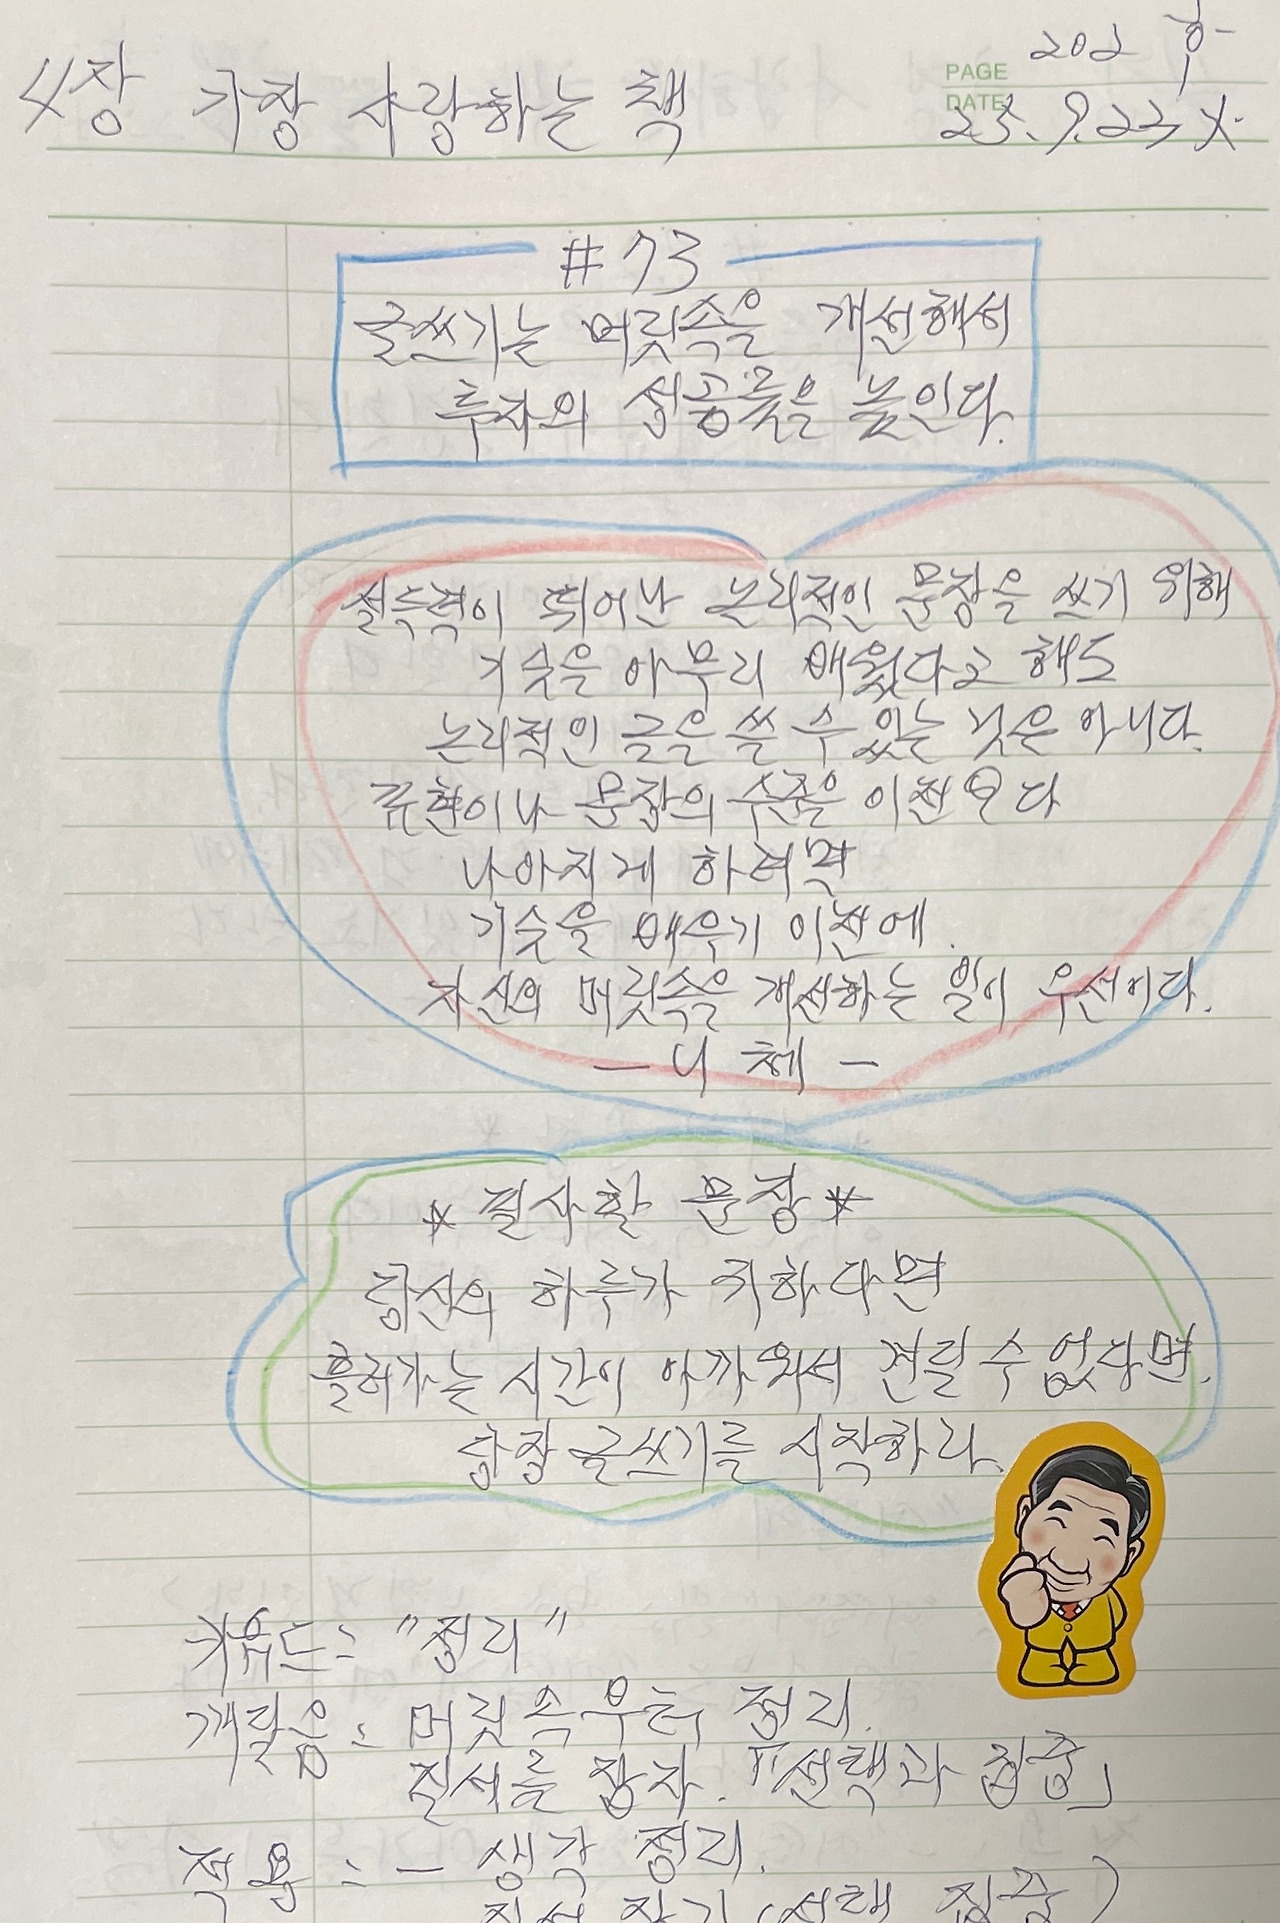 4장 가장 사랑하는 책
PAGE 202 후
DATE 23. 9. 23 x.
#73
글쓰기는 머릿속을 개선해서
투자의 성공률을 높인다.
설득력이 뛰어난 논리적인 문장을 쓰기 위해
기술을 아무리 배웠다고 해도
논리적인 글을 쓸 수 있는 것은 아니다.
표현이나 문장의 수준을 이전보다
나아지게 하려면
기술을 배우기 이전에.
자신의 머릿속을 개선하는 일이 우선이다.
- 니체 -
* 필사할 문장 *
당신의 하루가 귀하다면
흘러가는 시간이 아까워서 견딜 수 없다면.
당장 글쓰기를 시작하라.
키워드 : "정리"
깨달음 : 머릿속 우선, 정리.
질서를 잡자. 「선택과 집중」
적용 : - 생각 정리.
질서 잡기 (선택 집중)